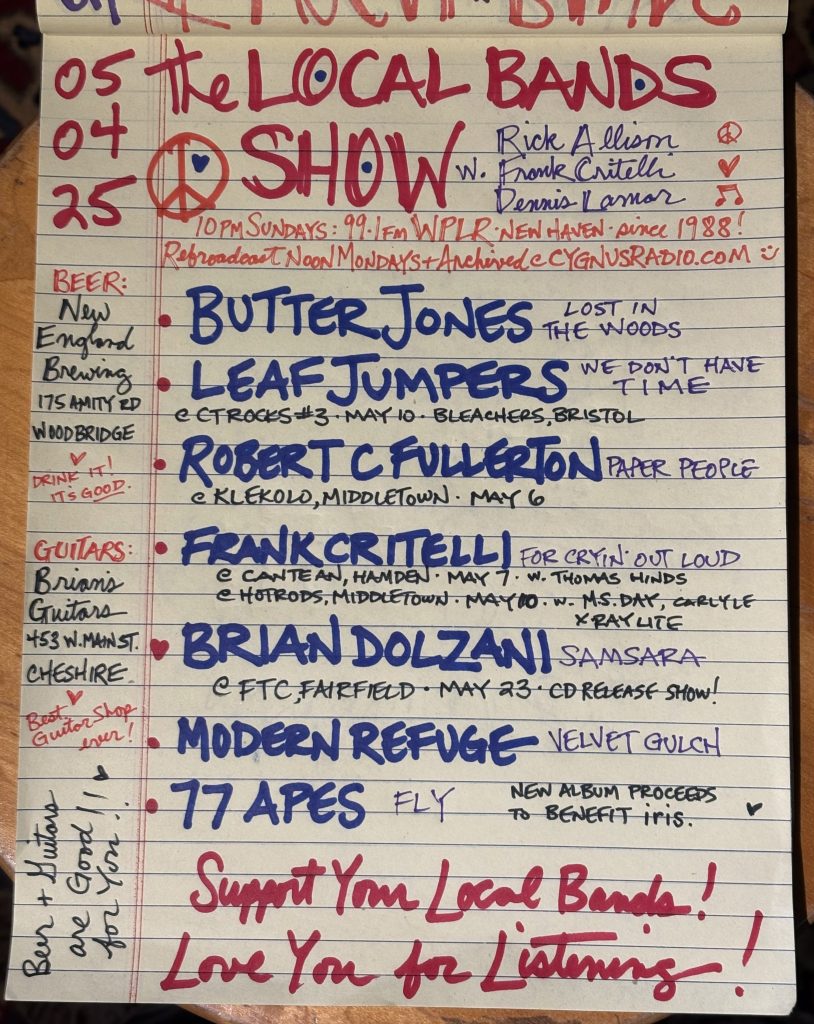 05
04
25
the LOCAL BANDS
SHOW w. Rick Allison
Frank Critelli
Dennis Lamar
10PM SUNDAYS: 99.1FM WPLR · NEW HAVEN · since 1988!
Rebroadcast NOON MONDAYS + Archived @ CYGNUSRADIO.COM
BEER:
New
England
Brewing
175 AMITY RD
WOODBRIDGE
DRINK IT!
ITS GOOD.
GUITARS:
Brian's
Guitars
453 W. MAIN ST.
CHESHIRE
Best
Guitar Shop
ever!
Beer + Guitars
are Good!!
for You!
• BUTTER JONES LOST IN
THE WOODS
• LEAF JUMPERS WE DON'T HAVE
TIME
@ CTROCKS #3 · MAY 10 · BLEACHERS, BRISTOL
• ROBERT C FULLERTON PAPER PEOPLE
@ KLEKOLO, MIDDLETOWN · MAY 6
• FRANK CRITELLI FOR CRYIN' OUT LOUD
@ CANTEAN, HAMDEN · MAY 7 · W. THOMAS HINDS
@ HOTRODS, MIDDLETOWN · MAY 10 · W. M.S. DAY, CARLYLE
XRAY LITE
BRIAN DOLZANI SAMSARA
@ FTC, FAIRFIELD · MAY 23 · CD RELEASE SHOW!
• MODERN REFUGE VELVET GULCH
• 77 APES FLY NEW ALBUM PROCEEDS
TO BENEFIT iris.
Support Your Local Bands!
Love You for Listening!